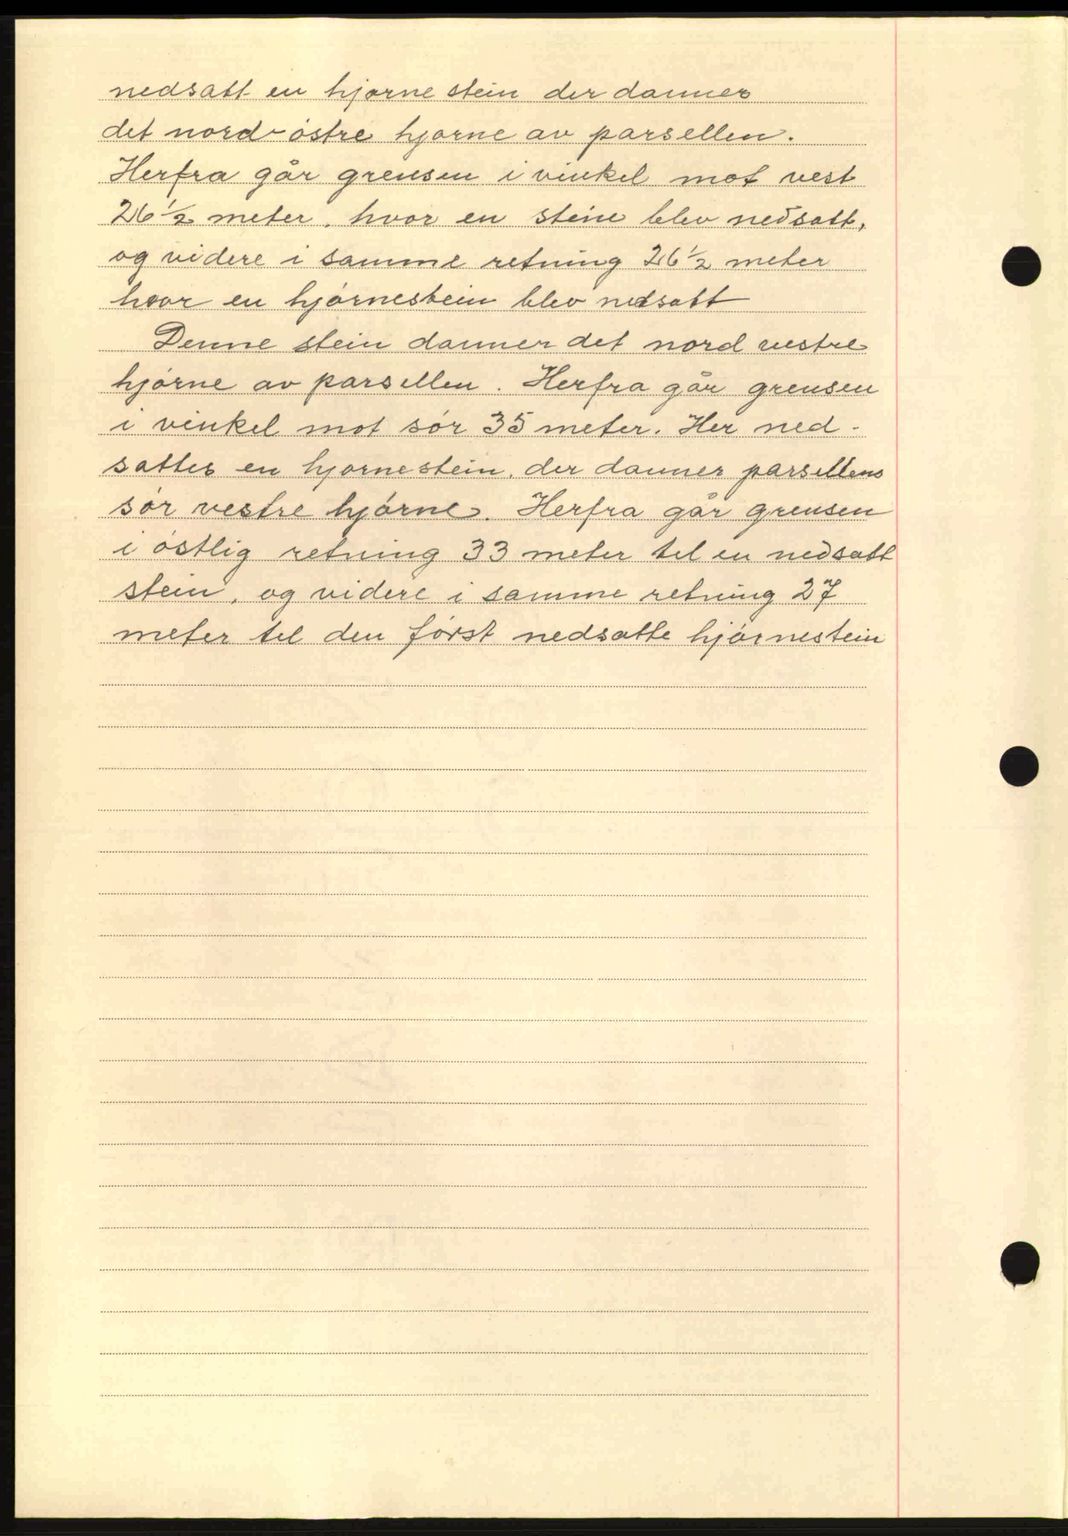 nedsatt en hjørne stein der danner
det nord-østre hjørne av parsellen.
Herfra går grensen i vinkel mot vest
26 1/2 meter, hvor en stein blev nedsatt,
og videre i samme retning 26 1/2 meter
hvor en hjørnestein blev nedsatt
Denne stein danner det nord vestre
hjørne av parsellen. Herfra går grensen
i vinkel mot sør 35 meter. Her ned-
sattes en hjørnestein, der danner parsellens
sør vestre hjørne. Herfra går grensen
i østlig retning 33 meter til en nedsatt
stein, og videre i samme retning 27
meter til den først nedsatte hjørnestein